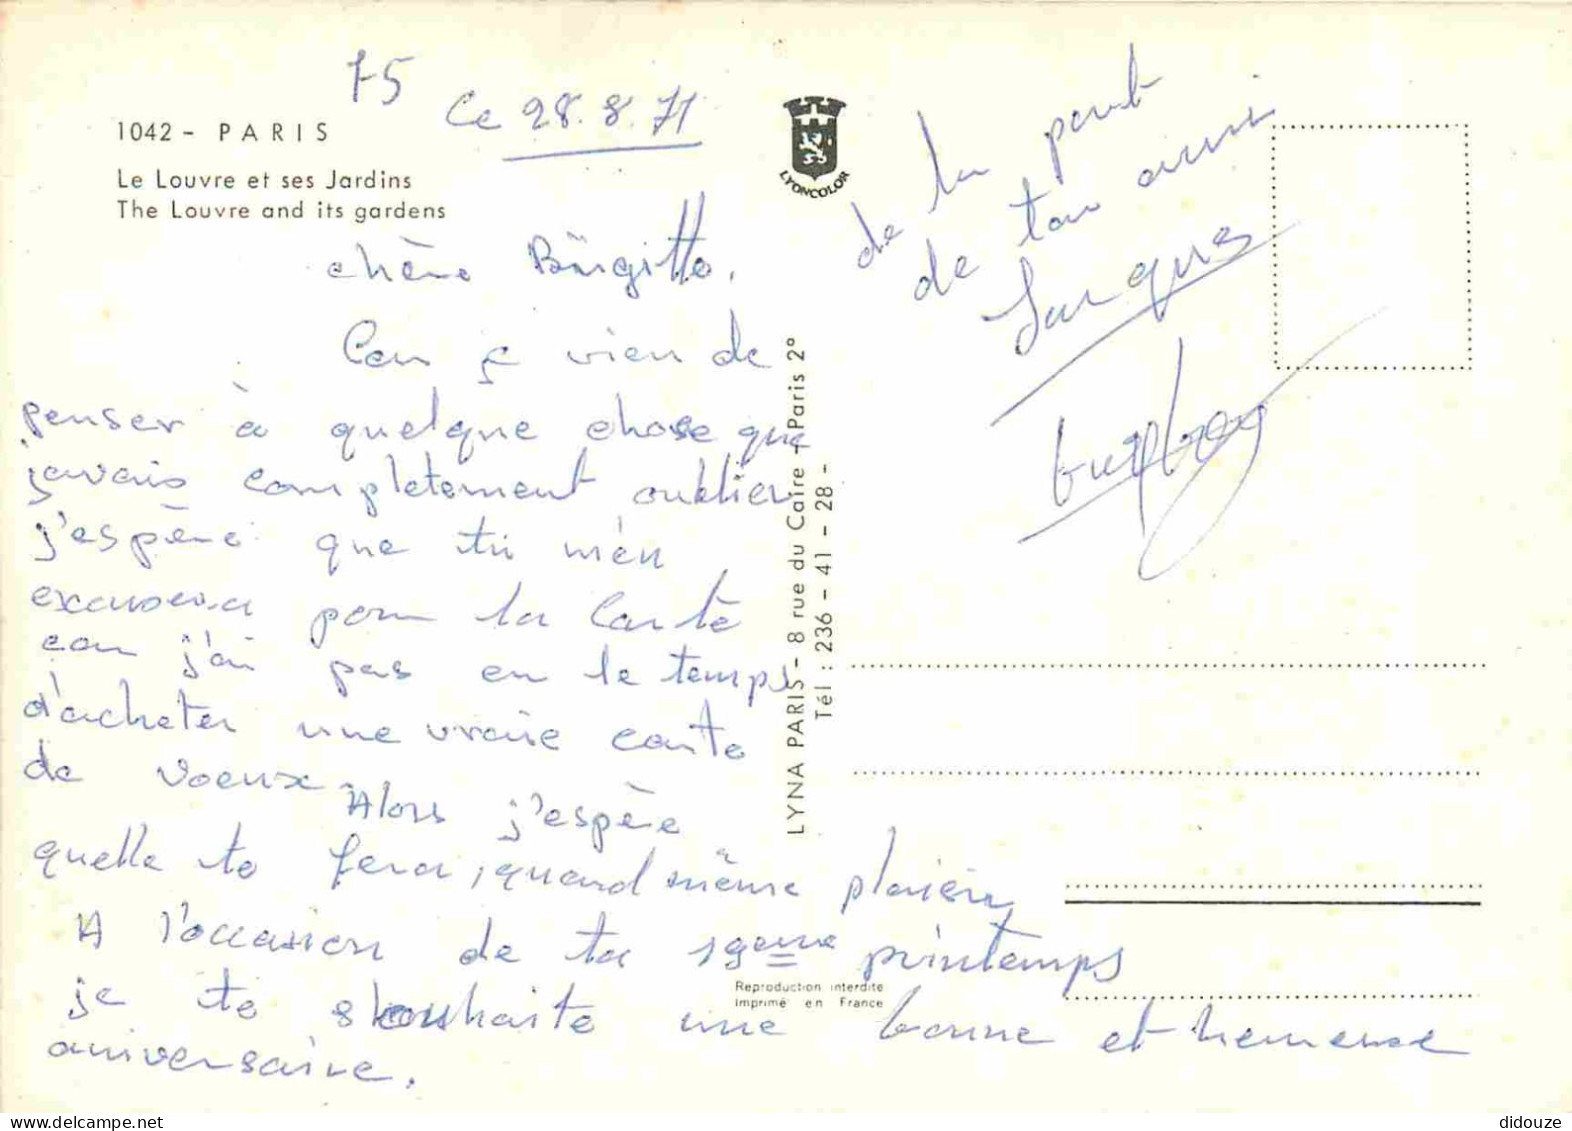 75
Ce 28.8.71
1042 - PARIS
Le Louvre et ses Jardins
The Louvre and its gardens
LYONCOLOR
chère Birgitte,
Can ç vien de
penser à quelque chose que
javais completement oublier
j'espère que tu m'en
excusera pour la Carte
can j'ai pas eu le temps
d'acheter une vraie carte
de voeux Alors j'espère
quelle te fera, quand même plaisir
A l'occasion de ta 19eme printemps
je te souhaite une bonne et heureuse
aniversaire.
de la part
de ton ami
Jacques
LYNA PARIS - 8 rue du Caire - Paris 2°
Tél : 236 - 41 - 28 -
Reproduction interdite
Imprimé en France
didouze